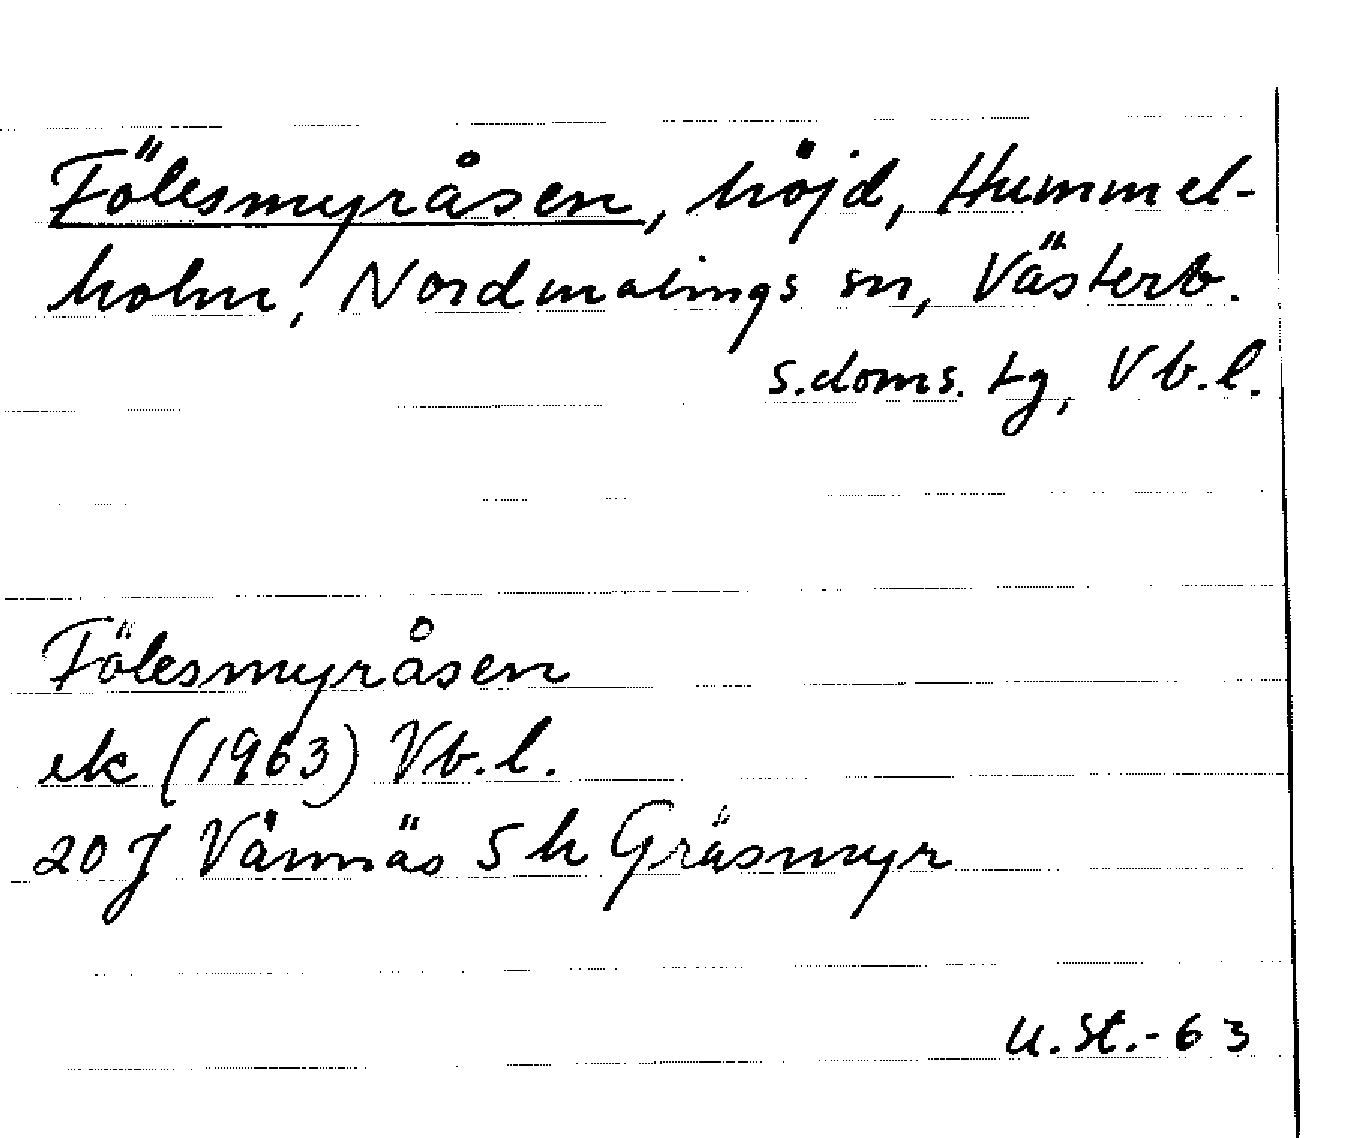 Fölesmyråsen, höjd, Hummel-
holm, Nordmalings sn, Västerb.
s.doms. tg, Vb.l.
Fölesmyråsen
ek (1963) Vb.l.
20 J Vännäs 5 h Gräsmyr
U.St.-63